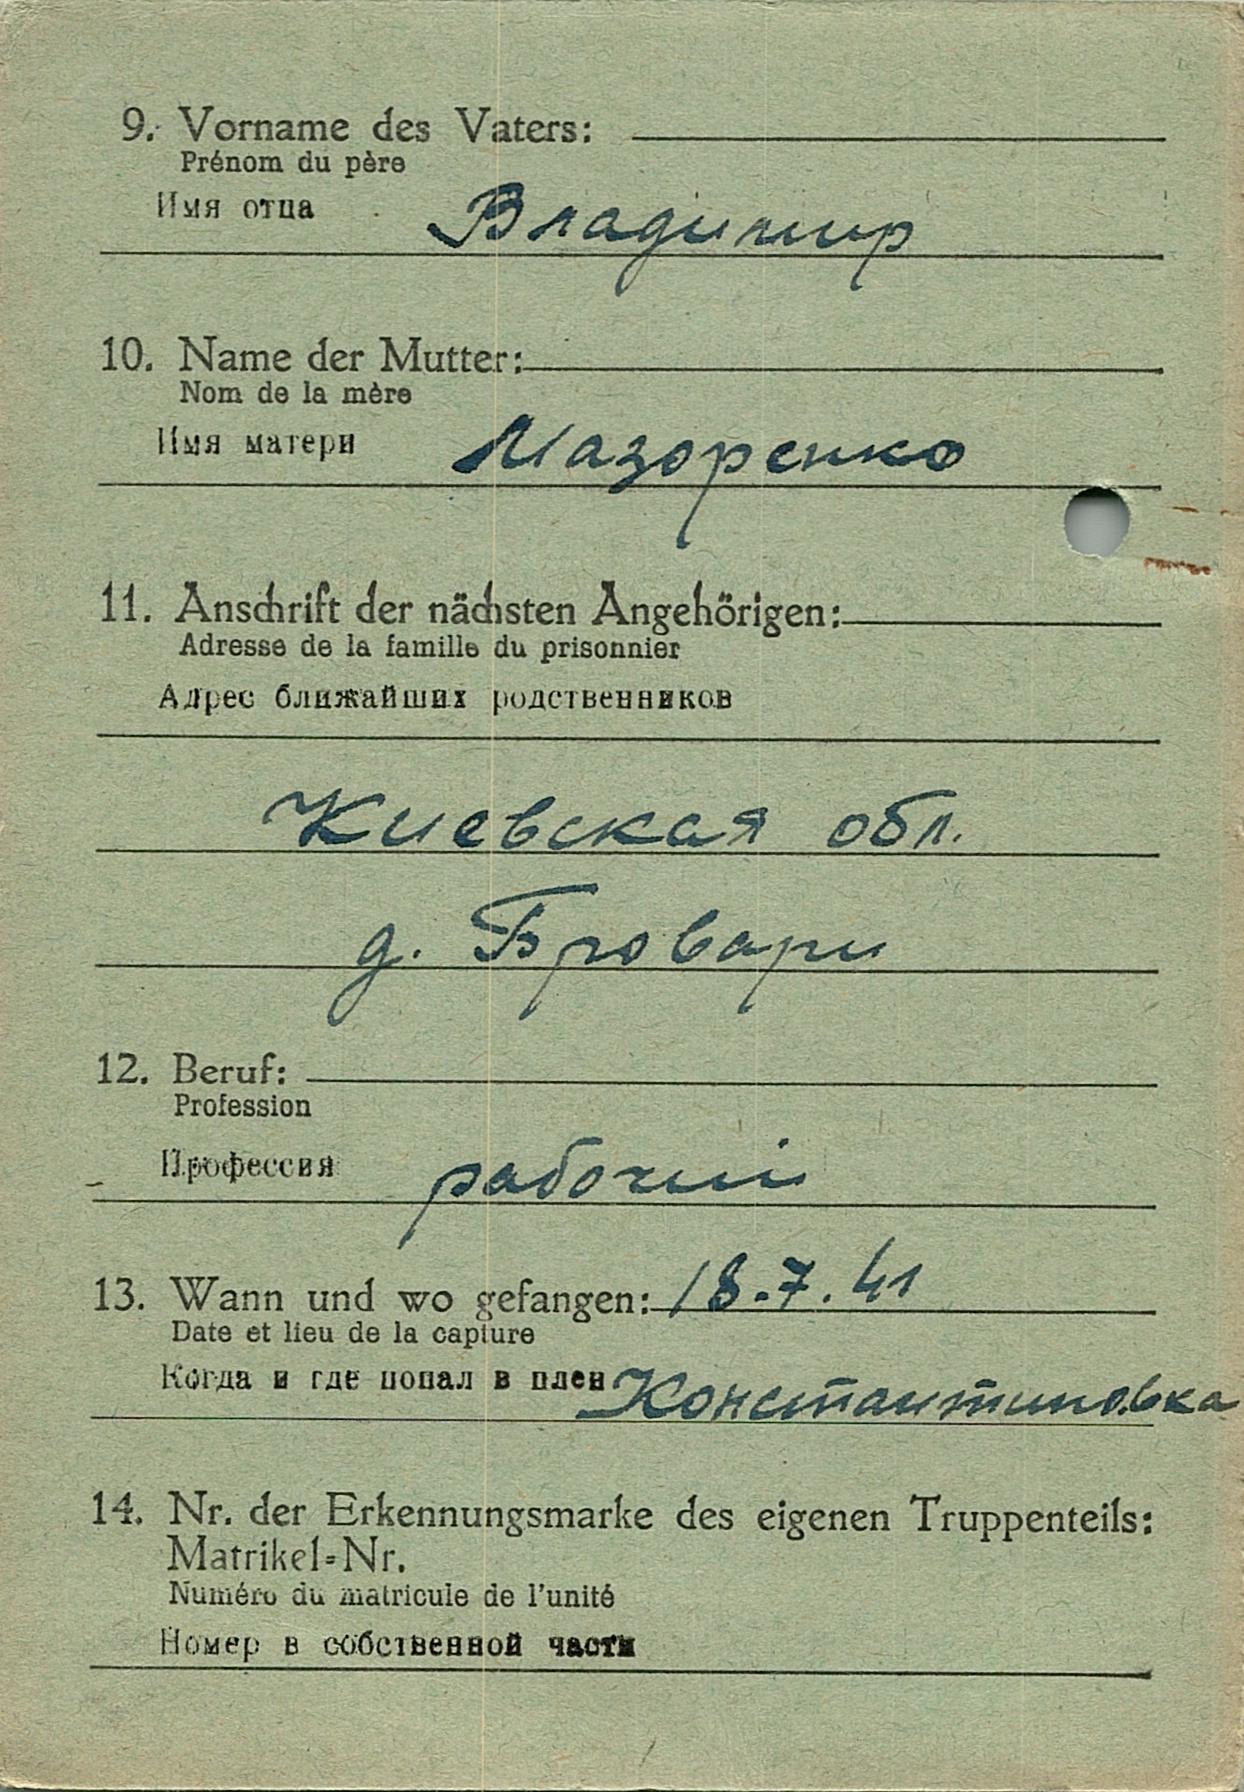 9. Vorname des Vaters:
Prénom du père
Имя отца Владимир
10. Name der Mutter:
Nom de la mère
Имя матери Мазоренко
11. Anschrift der nächsten Angehörigen:
Adresse de la famille du prisonnier
Адрес ближайших родственников
Киевская обл.
д. Бровари
12. Beruf:
Profession
Профессия рабочий
13. Wann und wo gefangen: 18.7.41
Date et lieu de la capture
Когда и где попал в плен Константиновка
14. Nr. der Erkennungsmarke des eigenen Truppenteils:
Matrikel=Nr.
Numéro du matricule de l'unité
Номер в собственной части